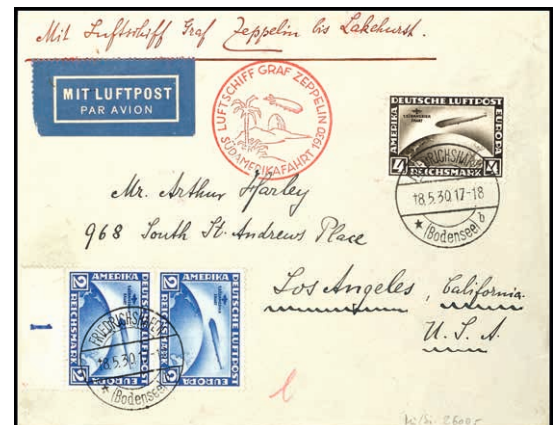 Mit Luftschiff Graf Zeppelin bis Lakehurst.
MIT LUFTPOST
PAR AVION
LUFTSCHIFF GRAF ZEPPELIN
SÜDAMERIKAFAHRT 1930
DEUTSCHE LUFTPOST
AMERIKA
EUROPA
SÜDAMERIKA
FAHRT
4 M
REICHSMARK
FRIEDRICHSHAFEN
18.5.30.17-18
★ (Bodensee) b
Mr. Arthur Harley
968 South St. Andrews Place
Los Angeles, California
U.S.A.
1
AMERIKA
DEUTSCHE LUFTPOST
EUROPA
2
REICHSMARK
2
AMERIKA
DEUTSCHE LUFTPOST
EUROPA
2
REICHSMARK
2
FRIEDRICHSHAFEN
18.5.30
★ (Bodensee)